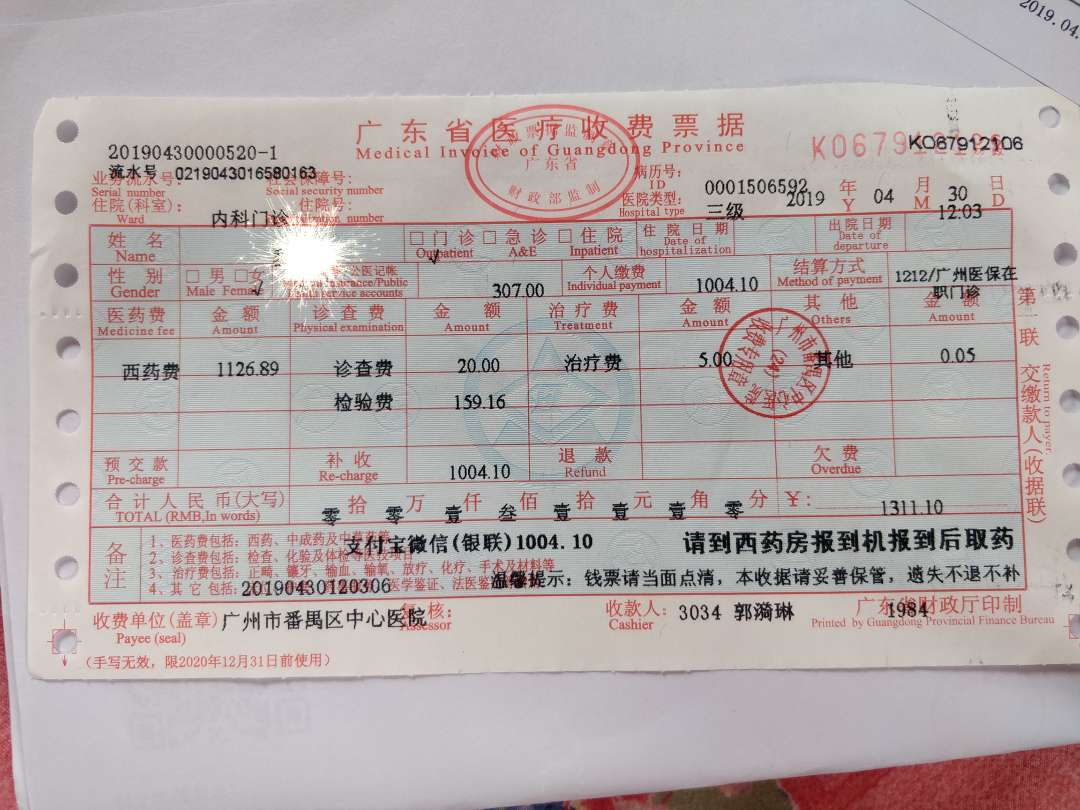 2019.04.
广东省医疗收费票据
Medical Invoice of Guangdong Province
财政部监制
广东省
20190430000520-1
KO67912106
业务流水号: 流水号 0219043016580163 社会保障号: 病历号:
Serial number Social security number ID 0001506592
住院(科室): 内科门诊 住院号: 医院类型: 三级 2019 年 04 月 30 日
Ward Hospital type Y M D
12:03
姓名 □门诊 □急诊 □住院 住院日期 出院日期
Name Outpatient A&E Inpatient Date of hospitalization Date of departure
√
性别 □男 □女 公医记帐 307.00 个人缴费 1004.10 结算方式 1212/广州医保在职门诊
Gender Male Female accounts Individual payment Method of payment
√
医药费 金额 诊查费 金额 治疗费 金额 其他 金额
Medicine fee Amount Physical examination Amount Treatment Amount Others Amount
西药费 1126.89 诊查费 20.00 治疗费 5.00 其他 0.05
检验费 159.16
预交款 补收 1004.10 退款 欠费
Pre-charge Re-charge Refund Overdue
合计人民币(大写) 零拾零万壹仟叁佰壹拾壹元壹角零分 ¥: 1311.10
TOTAL (RMB,In words)
备注
1、医药费包括: 西药、中成药及中草药等
2、诊查费包括: 检查、化验及体检等
3、治疗费包括: 正畸、镶牙、输血、输氧、放疗、化疗、手术及材料等
4、其它包括: 医学鉴证、法医鉴
支付宝微信(银联)1004.10 请到西药房报到机报到后取药
20190430120306 温馨提示: 钱票请当面点清, 本收据请妥善保管, 遗失不退不补
收费单位(盖章) 广州市番禺区中心医院 复核: 收款人: 3034 郭漪琳 1984 广东省财政厅印制
Payee (seal) Assessor Cashier Printed by Guangdong Provincial Finance Bureau
(手写无效, 限2020年12月31日前使用)
第 联 交缴款人(收据联)
Return to payer
广州市番禺区中心医院
(24)
收费专用章